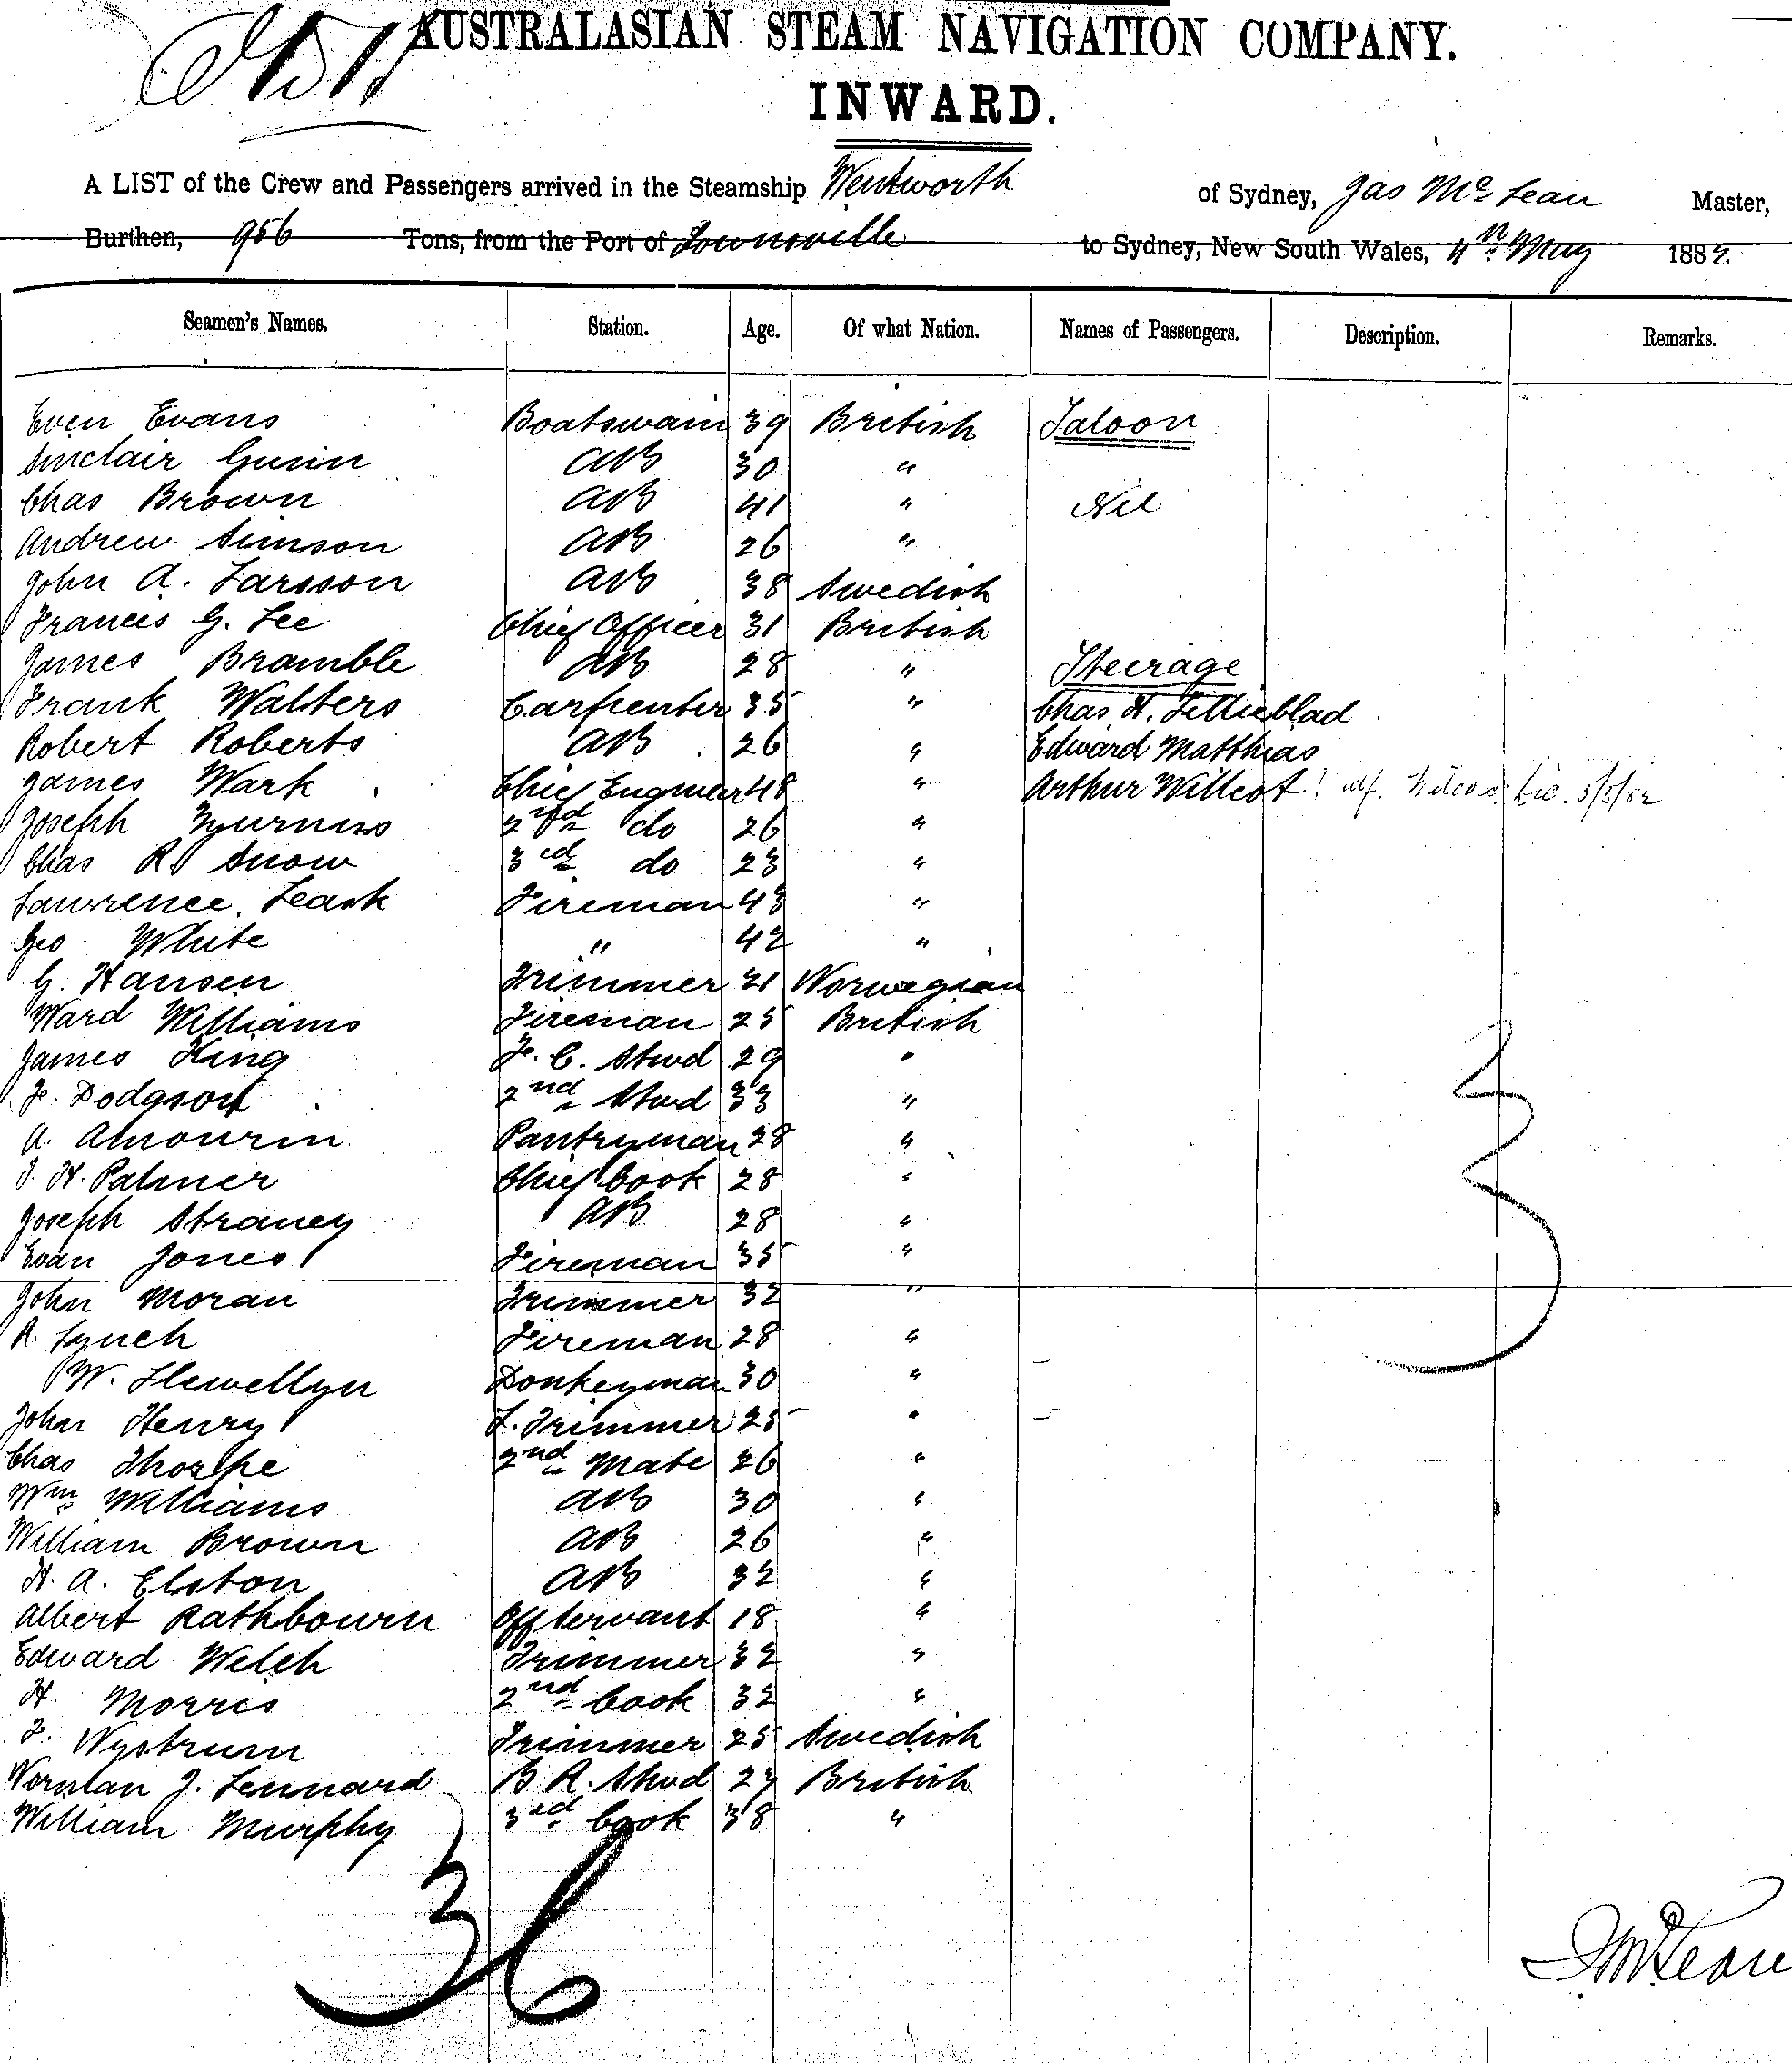 AUSTRALASIAN STEAM NAVIGATION COMPANY.
INWARD.
A LIST of the Crew and Passengers arrived in the Steamship Wentworth of Sydney, Jas McLean Master,
Burthen, 956 Tons, from the Port of Townsville to Sydney, New South Wales, 4th May 1882.
Seamen's Names. Station. Age. Of what Nation. Names of Passengers. Description. Remarks.
Even Evans Boatswain 39 British Saloon
Sinclair Gunn AB 30 "
Chas Brown AB 41 " Nil
Andrew Simson AB 26 "
John A. Larsson AB 38 Swedish
Francis G. Lee Chief Officer 31 British
James Bramble AB 28 " Steerage
Frank Walters Carpenter 35 " Chas H. Lillieblad
Robert Roberts AB 26 " Edward Matthias
James Wark Chief Engineer 48 " Arthur Willcot
Joseph 2nd do 26 "
Chas R Snow 3rd do 23 "
Lawrence Leask Fireman 43 "
Geo White " 42 "
G. Hansen Trimmer 21 Norwegian
Ward Williams Fireman 25 British
James King F. C. Stwd 29 "
F. Dodgson 2nd Stwd 33 "
A. Pantryman 28 "
J. H. Palmer Chief Cook 28 "
Joseph Straney AB 28 "
Evan Jones Fireman 35 "
John Moran Trimmer 32 "
R. Lynch Fireman 28 "
W. Llewellyn Donkeyman 30 "
John Henry Trimmer 25 "
Chas Thorpe 2nd Mate 26 "
Wm Williams AB 30 "
William Brown AB 26 "
H. A. Elston AB 32 "
Albert Rathbourn Off Servant 18 "
Edward Welch Trimmer 32 "
H. Morris 2nd Cook 32 "
F. Nystrum Trimmer 25 Swedish
Norman J. Lennard B R. Stwd 27 British
William Murphy 3rd Cook 38 "
3
36
J McLean